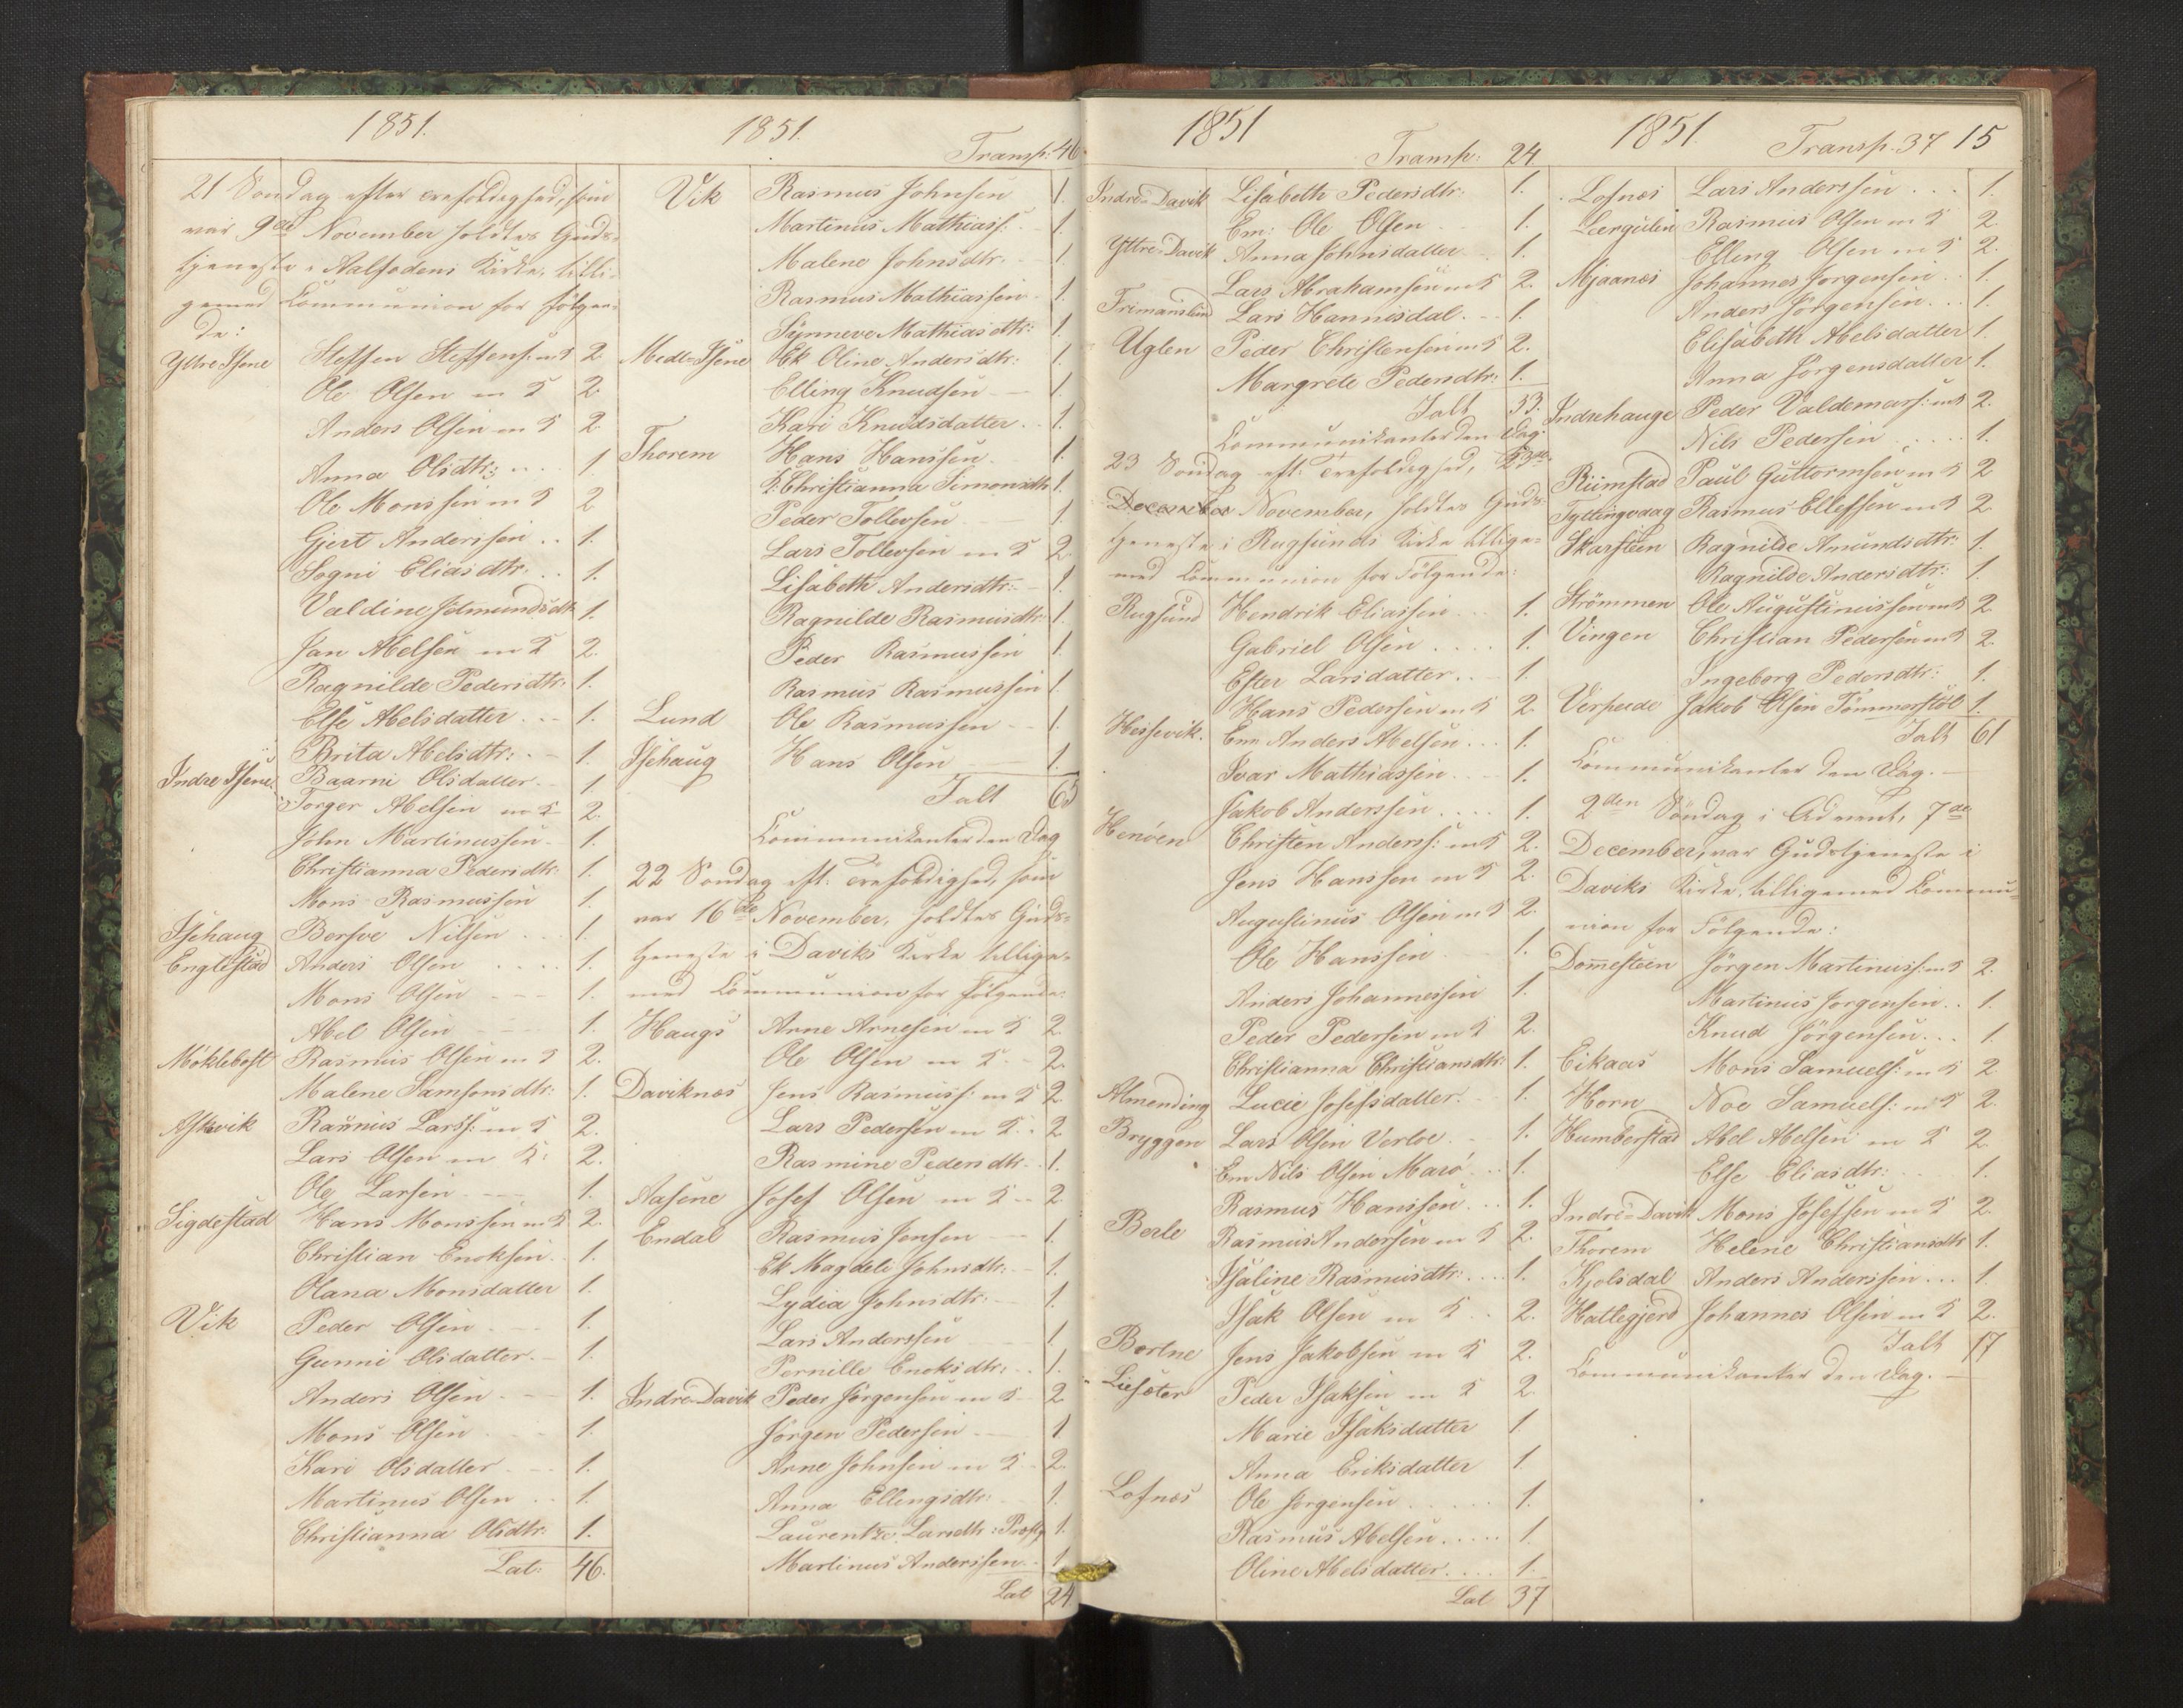 1851.
21 Söndag efter Trefoldighed, som
var 9de November holdtes Guds-
tjeneste i Aalfodens Kirke, tilli-
gemed Communion for Følgen-
de:
Yttre Isene Steffen Steffens: m K 2.
Ole Olsen m K 2
Anders Olsen m K 2.
Anna Olsdtr: 1
Ole Monssen m K 2
Gjert Anderssen .. 1.
Sogni Eliasdtr. .. 1.
Valdine 1.
Jan Abelsen m K 2.
Ragnilde Pedersdtr: 1.
Else Abelsdatter .. 1.
Brita Abelsdtr: 1.
Indre Isene Baarni Olsdatter. 1.
Torger Abelsen m K 2.
John Martinussen. 1.
Christianna Pedersdtr: 1.
Mons Rasmussen 1.
Isehaug Bersve Nilsen .. 1.
Englestad Anders Olsen .... 1.
Mons Olsen - - - 1.
Abel Olsen - - - 1.
Möklebost Rasmus Olsen m K 2.
Malene Samsonsdtr: 1.
Askevik Rasmus Larss: m K 2.
Lars Olsen m K: 2.
Ole Larsen - - 1.
Sigdestad Hans Monssen m K 2.
Christian Enoksen. 1.
Olana Monsdatter 1.
Vik Peder Olsen - - 1.
Gunni Olsdatter. - 1.
Anders Olsen. - 1.
Mons Olsen - - 1.
Kari Olsdatter - - 1.
Martinus Olsen .. 1.
Christianna Olsdtr: 1.
Lat: 46.
1851.
Transp: 46.
Vik Rasmus Johnsen 1.
Martinus Mathiass: - 1.
Malene Johnsdtr. - 1.
Rasmus Mathiassen. 1.
Synneve Mathiasdtr: 1.
Medl-Isene Ek Oline Andersdtr: 1.
Elling Knudsen - 1.
Kari Knudsdatter. 1.
Thorem Hans Hanssen. 1.
K: Christianna Simonsdtr 1.
Peder Tollevsen - 1.
Lars Tollevsen m K 2.
Lisabeth Andersdtr: - 1.
Ragnilde Rasmusdtr: 1.
Peder Rasmussen 1.
Rasmus Rasmussen 1.
Lund Ole Rasmussen - - 1.
Isehaug Hans Olsen - 1.
Ialt 65
Communikanter den Dag
22 Söndag eft. Trefoldighed, som
var 16de November, holdtes Guds-
tjeneste i Daviks Kirke tillige-
med Communion for Følgende:
Haugs Arne Arnesen m K 2.
Ole Olsen m K - 2.
Daviknæs Jens Rasmuss: m K 2.
Lars Pedersen m K .. 2
Rasmine Pedersdtr. 1.
Aasene Josef Olsen m K - 2.
Endal Rasmus Jensen - 1.
Ek Magdeli Johnsdtr: 1.
Lydia Johnsdtr: - 1.
Lars Anderssen 1
Pernille Enoksdtr: . 1.
Indre-Davik Peder Jørgensen m K 2
Jörgen Pedersen - 1
Arne Johnsen m K - 2.
Anna Ellingsdtr: - 1.
Laurentze Larsdtr: Præstg 1.
Martinus Anderssen - 1.
Lat 24.
1851
Transp: 24.
Indre-Davik Lisabeth Pedersdtr: 1.
Em: Ole Olsen - - 1.
Yttre-Davik Anna Johnsdatter .. 1.
Lars Abrahamsen m K 2.
Lars Hannisdal. - 1.
Uglen Peder Christensen m K 2.
Margrete Pedersdtr: 1.
Ialt 33.
Communikanter den Dag.
23 Söndag eft. Trefoldighed, 23de
December November, holdtes Guds-
tjeneste i Rugsunds Kirke tillige-
med Communion for Følgende:
Rugsund Hendrik Eliassen .. 1.
Gabriel Olsen .... 1.
Ester Larsdatter .. 1.
Hans Pedersen m K 2
Hessevik. Em Anders Abelsen ... 1.
Ivar Mathiassen .. 1.
Jakob Anderssen .... 1.
Henöen Christen Anderss: m K 2.
Jens Hanssen m K 2.
Augustinus Olsen m K 2.
Ole Hanssen .. 1.
Anders Johannessen 1.
Peder Pedersen m K 2.
Christianna Christiansdtr: 1.
Almending Lucie Josefsdatter. - 1.
Bryggen Lars Olsen Vorloe .. 1.
Em Nils Olsen Marö .. 1.
Rasmus Hanssen .. 1.
Berle Rasmus Andersen m K 2.
Isaline Rasmusdtr: ... 1.
Isak Olsen m K .. 2.
Bortne Jens Jakobsen m K 2.
Liesæter Peder Isaksen m K 2.
Marie Isaksdatter 1.
Anna Eriksdatter 1.
Lofnæs Ole Jorgensen ..... 1.
Rasmus Abelsen ..... 1.
Oline Abelsdatter .... 1.
Lat 37
1851.
Transp. 37 15
Lofnæs Lars Anderssen ... 1.
Leergulen Rasmus Olsen m K 2
Elling Olsen m K 2.
Mjaanæs Johannes Jorgensen .. 1.
Anders Jörgensen ... 1.
Elisabeth Abelsdatter 1.
Anna Jörgensdatter 1.
Indrehauge Peder Valdemars: m K 2.
Nils Pedersen .... 1.
Riimstad Paul Guttormsen m K 2
Tyttingvaag Rasmus Ellefsen m K 2
Skarsteen Ragnilde Amundsdtr: 1.
Ragnilde Andersdtr: 1.
Strömmen Ole Augustinussen m K 2
Vingen Christian Pedersen m K 2.
Ingeborg Pedersdtr: 1.
Verpeide Jakob Olsen Tömmerstöl 1.
Ialt 61
Communikanter den Dag. -
2den Söndag i Advent, 7de
December, var Gudstjeneste i
Daviks Kirke, tilligemed Commu-
nion for Følgende:
Domesteen Jörgen Martinuss: m K 2.
Martinus Jorgensen .. 1.
Knud Jörgensen ... 1.
Eikaas Mons Samuels: m K 2
Horn Noe Samuels: m K 2.
Humberstad Abel Abelsen m K 2
Else Eliasdtr: .. 1.
Indre-Davik Mons Josefsen m K 2.
Thorem Helene Christiansdtr 1.
Kjolsdal Anders Anderssen ... 1.
Hattegjerd Johannes Olsen m K 2.
Ialt 17
Communikanter den Dag. -